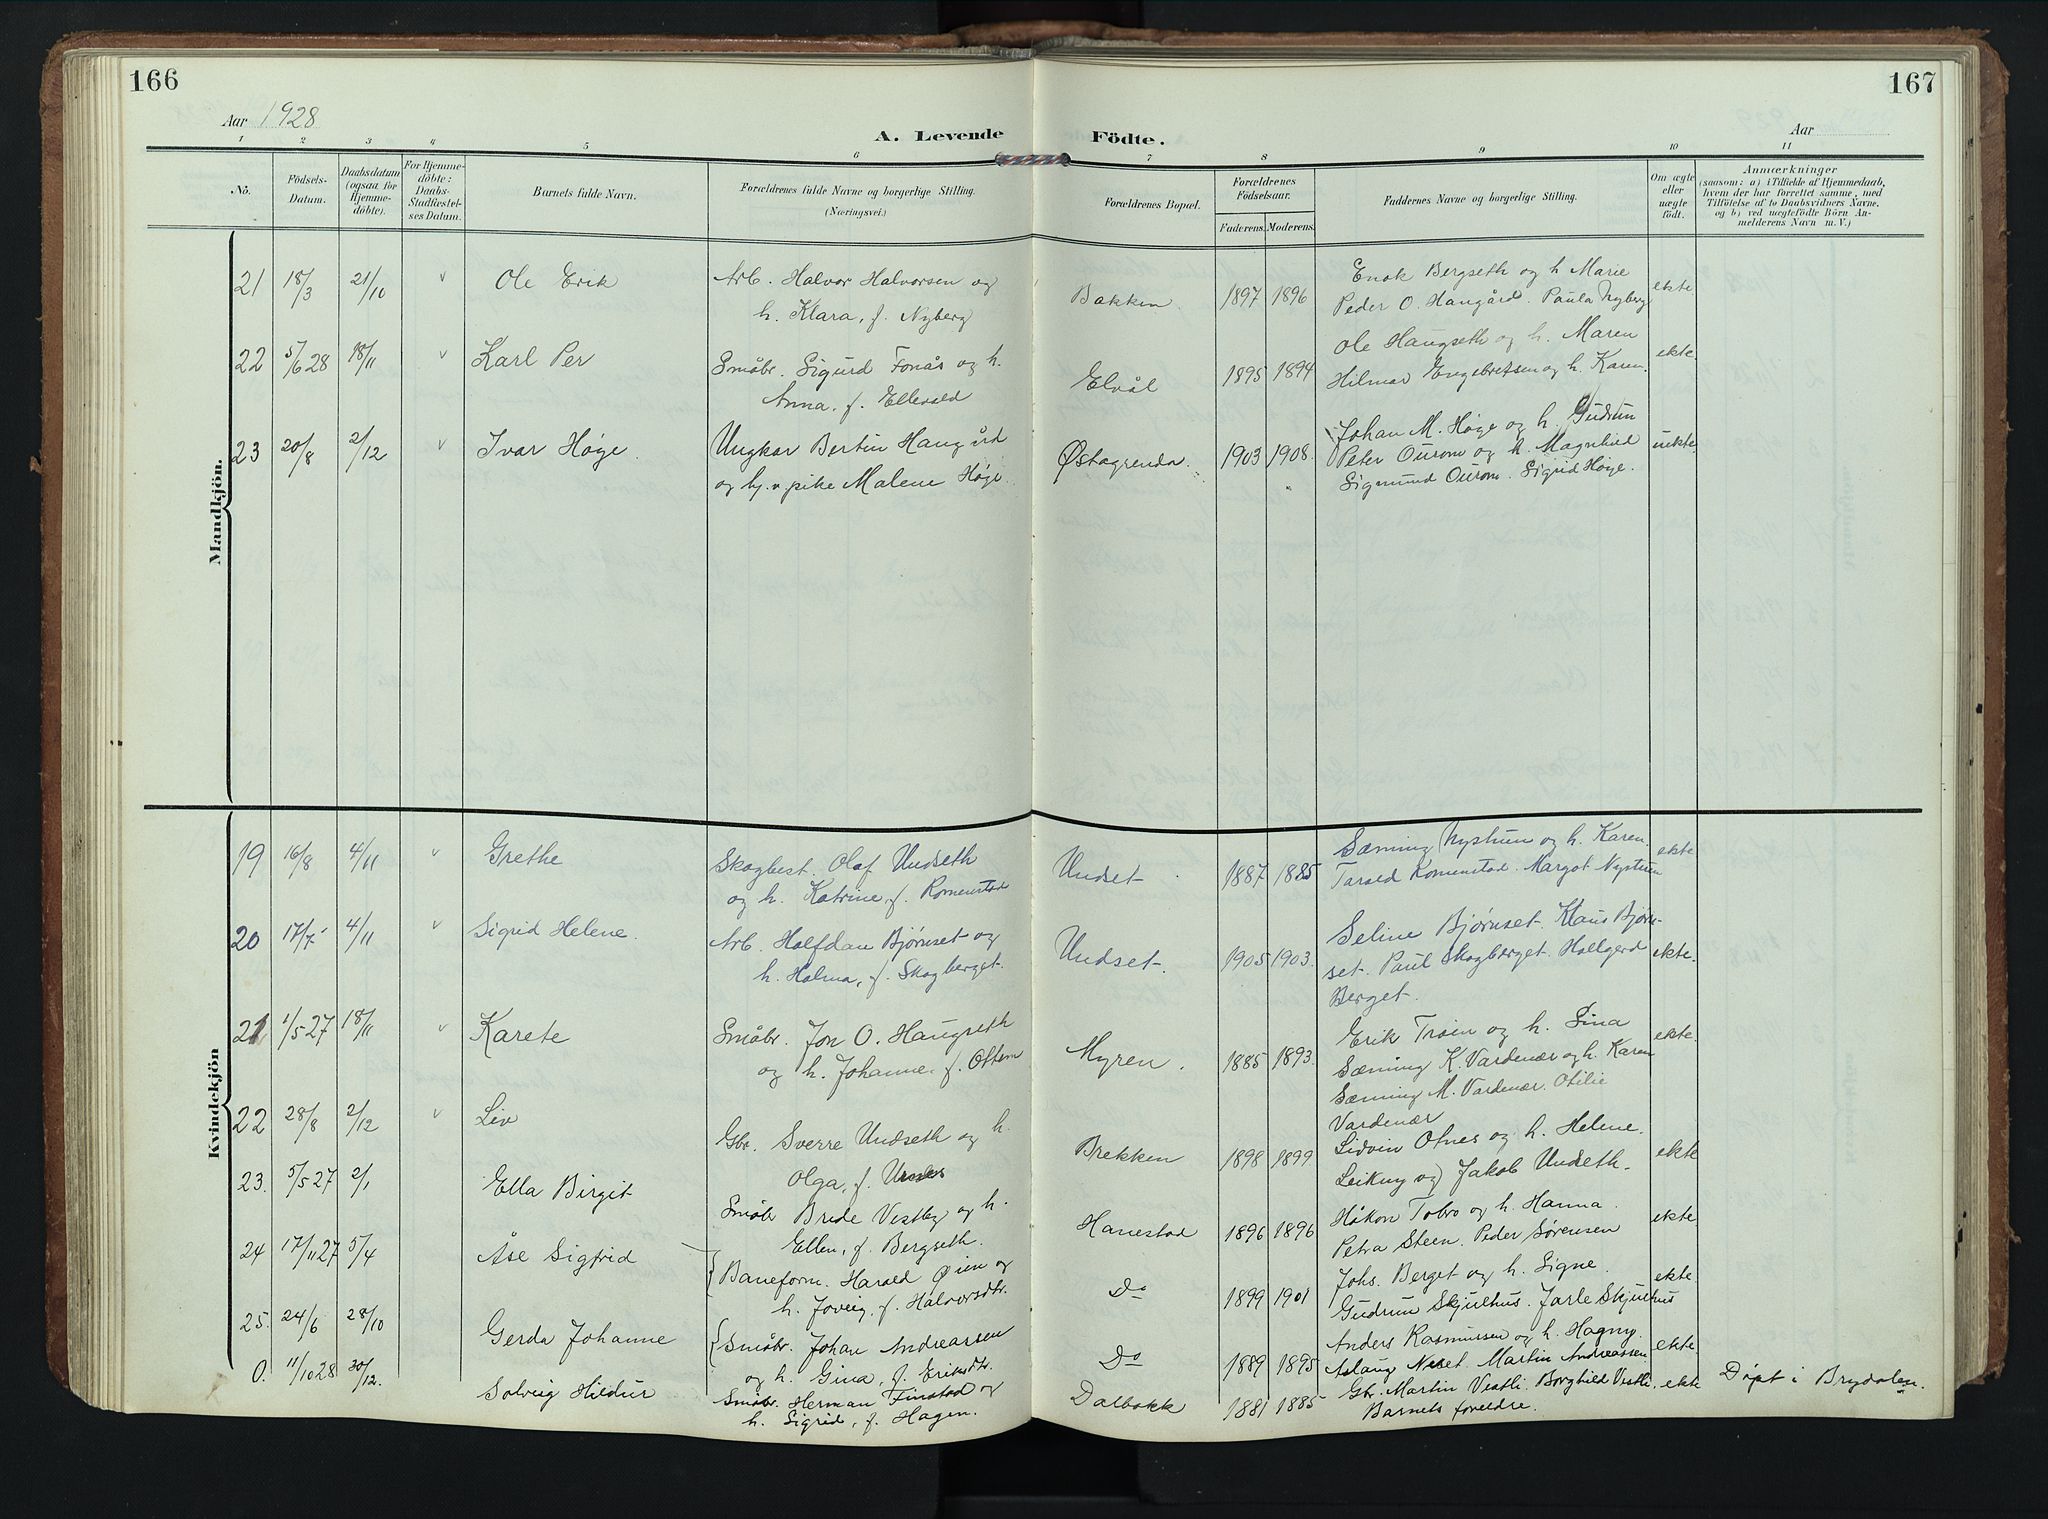 166
Aar 1928
A. Levende
1 2 3 4 5 6
Nö. Födsels-Datum. Daabsdatum (ogsaa for Hjemmedöbte). For Hjemmedöbte: Daabs-Stadfæstelses Datum. Barnets fulde Navn. Forældrenes fulde Navne og borgerlige Stilling. (Næringsvei.)
Mandkjön.
21 18/3 21/10 v Ole Erik Arb. Halvor Halvorsen og
h. Klara, f. Nyberg
22 5/6 28 18/11 v Karl Per Småbr. Sigurd Fonås og h.
Anna, f. Ellevold
23 20/8 2/12 v Ivar Høge. Ungkar Bertin Haugård
og hj.v. pike Malene Høge
Kvindekjön
19 16/8 4/11 v Grethe Skogbest. Olaf Undseth
og h. Katrine, f. Romenstad
20 17/7 4/11 v Sigrid Helene. Arb. Halfdan Bjørnset og
h. Halma, f. Skogberget.
21 1/5 27 18/11 v Karete Småbr. Jon O. Haugseth
og h. Johanne, f. Ottem
22 28/8 2/12 v Liv Gbr. Sverre Undseth og h.
Olga, f.
23. 5/5 27 2/1 Ella Birgit Småbr Brede Vestby og h.
Ellen, f. Bergseth.
24 17/11 27 5/4 Åse Sigfrid Baneform. Harald Øien og
h. Joveig, f. Halvorsdtr.
25. 24/6 28/10 Gerda Johanne Småbr. Johan Andreassen
og h. Gina, f. Eriksdtr.
0. 11/10 28 30/12. Solveig Hildur Småbr. Herman Finstad og
h. Sigrid, f. Hagen.
167
Aar
Födte.
7 8 9 10 11
Forældrenes Bopæl. Forældrenes Födselsaar. Faderens. Moderens. Faddernes Navne og borgerlige Stilling. Om ægte eller uægte födt. Anmærkninger
(saasom: a) i Tilfælde af Hjemmedaab,
hvem der har forrettet samme, med
Tilföielse af to Daabsvidners Navne.
og b) ved uægtefödte Börn Anmelderens Navn m. V.)
Bakken. 1897 1896 Enok Bergseth og h Marie ekte
Peder O. Haugård. Paula Nyberg
Ole Haugseth og h. Maren
Elvål 1895 1894 Hilmar Engebretsen og h. Karen. ekte.
Johan M. Høge og h. Gudrun
Østagrenda. 1903 1908. Peter Ourom og h. Magnhild uekte.
Sigmund Ourom. Sigrid Høge.
Sæming Nystuen og h. Karen. ekte
Undset 1887 1885 Tarald Romenstad. Margot Nystuen
Seline Bjørnset. Klaus Bjørn-
Undset. 1905 1903. set. Paul Skogberget. Hallgerd ekte.
Berget.
Erik Trøen og h. Gina ekte.
Myren. 1885 1893. Sæming K. Vardenær og h. Karen
Sæming M. Vardenær. Otilie
Vardenær
Lidvin Otnes og h. Helene.
Brekken 1898 1899 Leikny og Jakob Undseth. ekte
Håkon Tobro og h. Hanna.
Hanestad 1896 1896 Petra Steen. Peder Sørensen ekte
Johs. Berget og h. Signe.
Do 1899 1901 Gudrun Skjulhus. Jarle Skjulhus ekte.
Anders Rasmussen og h. Hagny.
Do 1889 1895 Aslaug Neset. Martin Andreassen. ekte.
Dalbakk 1881 1885 Gbr. Martin Vestli. Borghild Vestli. ekte Døpt i Brydalen.
Barnets foreldre.